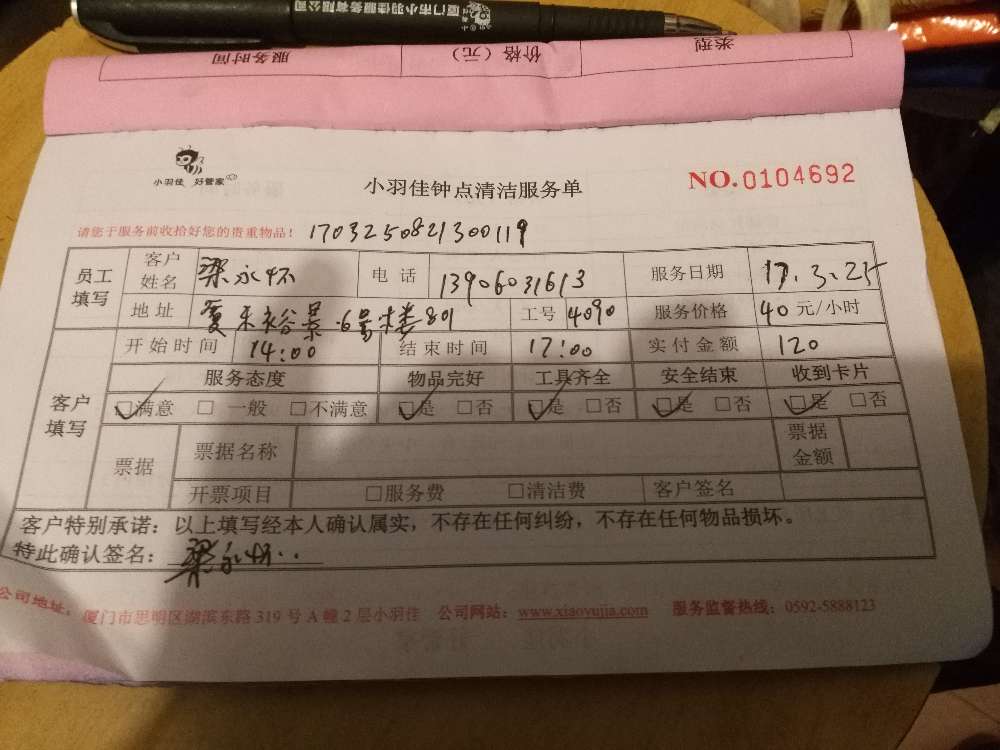 厦门市小羽佳服务有限公司
类型 价格（元） 服务时间
小羽佳 好管家
小羽佳钟点清洁服务单
NO.0104692
请您于服务前收拾好您的贵重物品！ 1703250821300119
员工填写 客户姓名 梁永怀 电话 13906031613 服务日期 17.3.25
地址 夏禾裕景.6号楼801 工号 4090 服务价格 40 元/小时
客户填写 开始时间 14:00 结束时间 17:00 实付金额 120
服务态度 物品完好 工具齐全 安全结束 收到卡片
☑满意 □一般 □不满意 ☑是 □否 ☑是 □否 ☑是 □否 ☑是 □否
票据 票据名称 票据金额
开票项目 □服务费 □清洁费 客户签名
客户特别承诺：以上填写经本人确认属实，不存在任何纠纷，不存在任何物品损坏。
特此确认签名：梁永怀
公司地址：厦门市思明区湖滨东路 319 号 A 幢 2 层小羽佳 公司网站：www.xiaoyujia.com 服务监督热线：0592-5888123